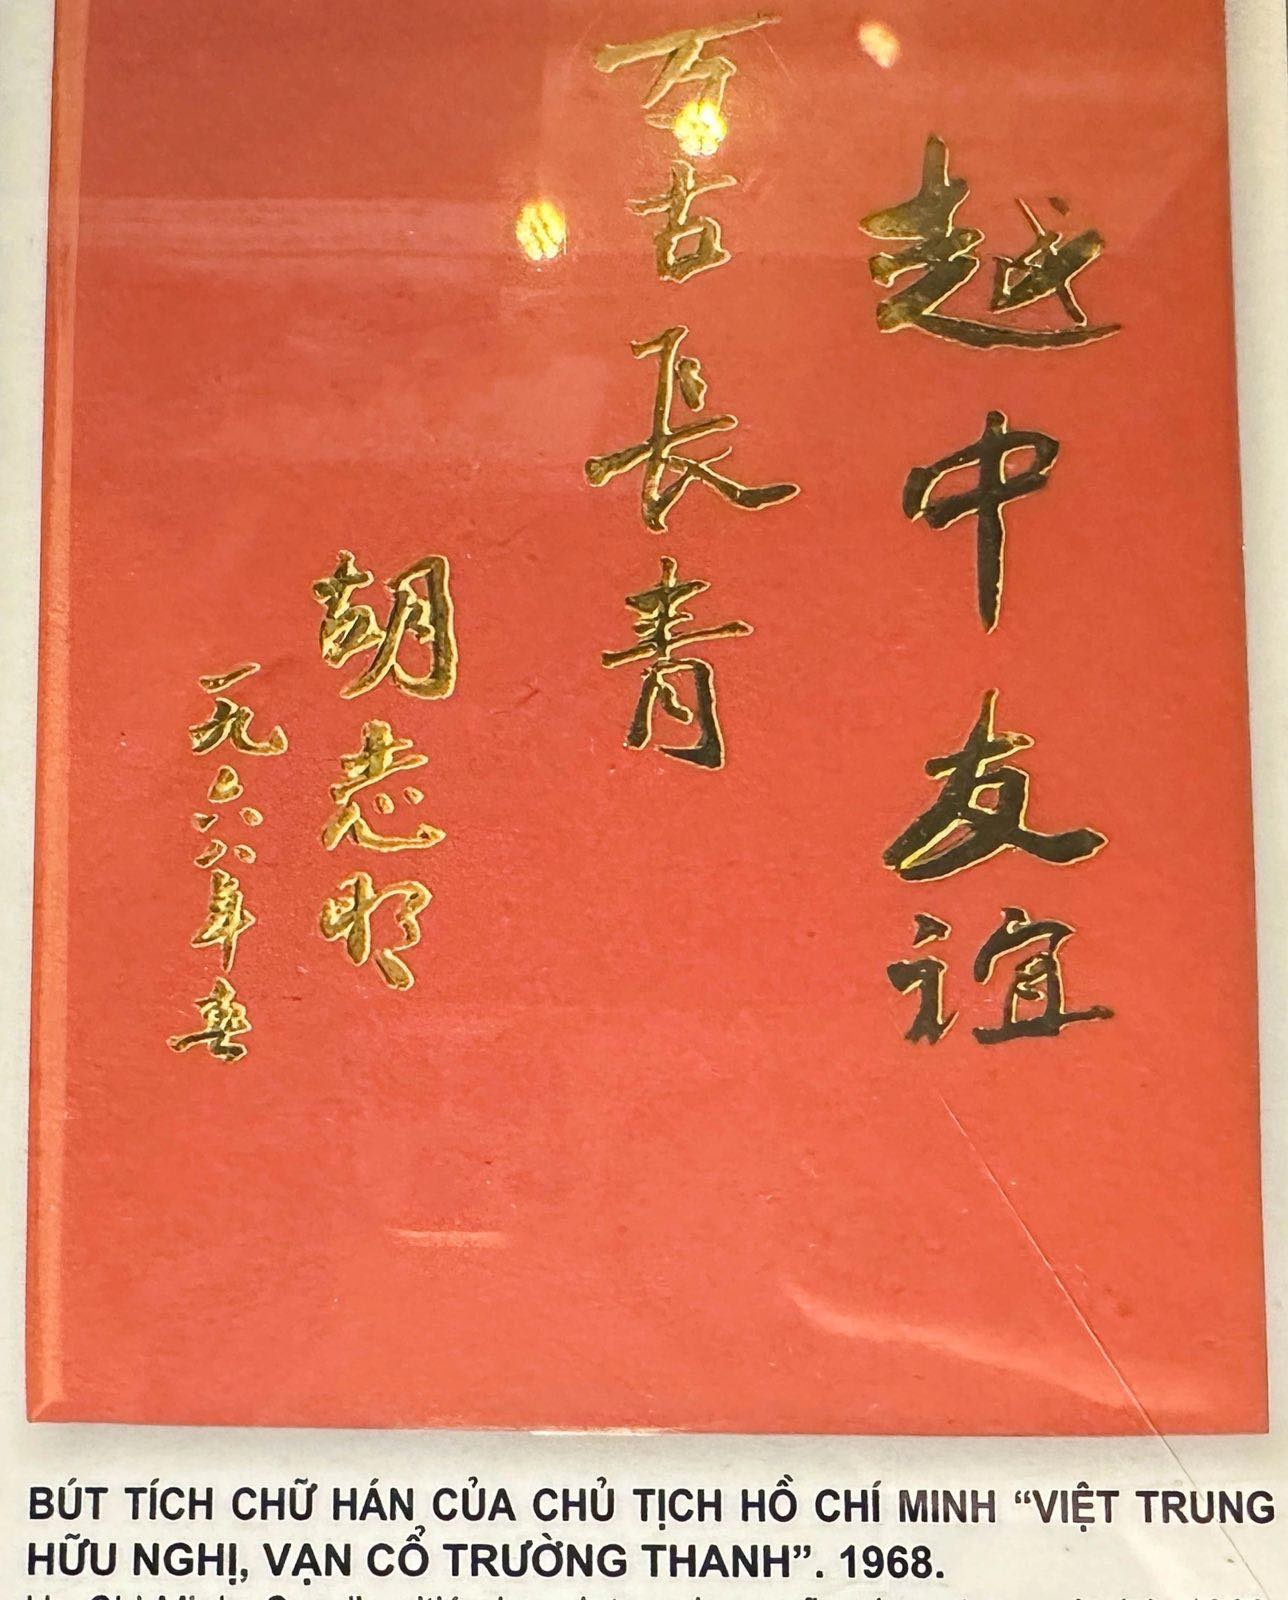 越中友谊
万古長青
胡志明
一九六八年春
BÚT TÍCH CHỮ HÁN CỦA CHỦ TỊCH HỒ CHÍ MINH “VIỆT TRUNG
HỮU NGHỊ, VẠN CỔ TRƯỜNG THANH”. 1968.